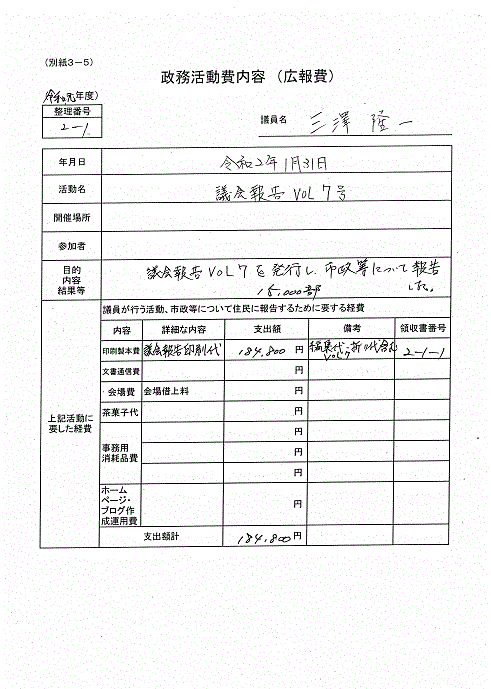 （別紙３－５）
政務活動費内容 （広報費）
（令和元年度）
整理番号
2-1
議員名 三澤 隆一
年月日 令和2年1月31日
活動名 議会報告 VOL 7号
開催場所
参加者
目的
内容
結果等
議会報告 VOL7 を発行し、市政等について報告
18,000部 した。
上記活動に
要した経費
議員が行う活動、市政等について住民に報告するために要する経費
内容 詳細な内容 支出額 備考 領収書番号
印刷製本費 議会報告印刷代 184,800 円 編集代・折り代含む VOL7 2-1-1
文書通信費 円
会場費 会場借上料 円
茶菓子代 円
事務用
消耗品費
円
円
円
ホーム
ページ・
ブログ作
成運用費
円
支出額計 184,800 円